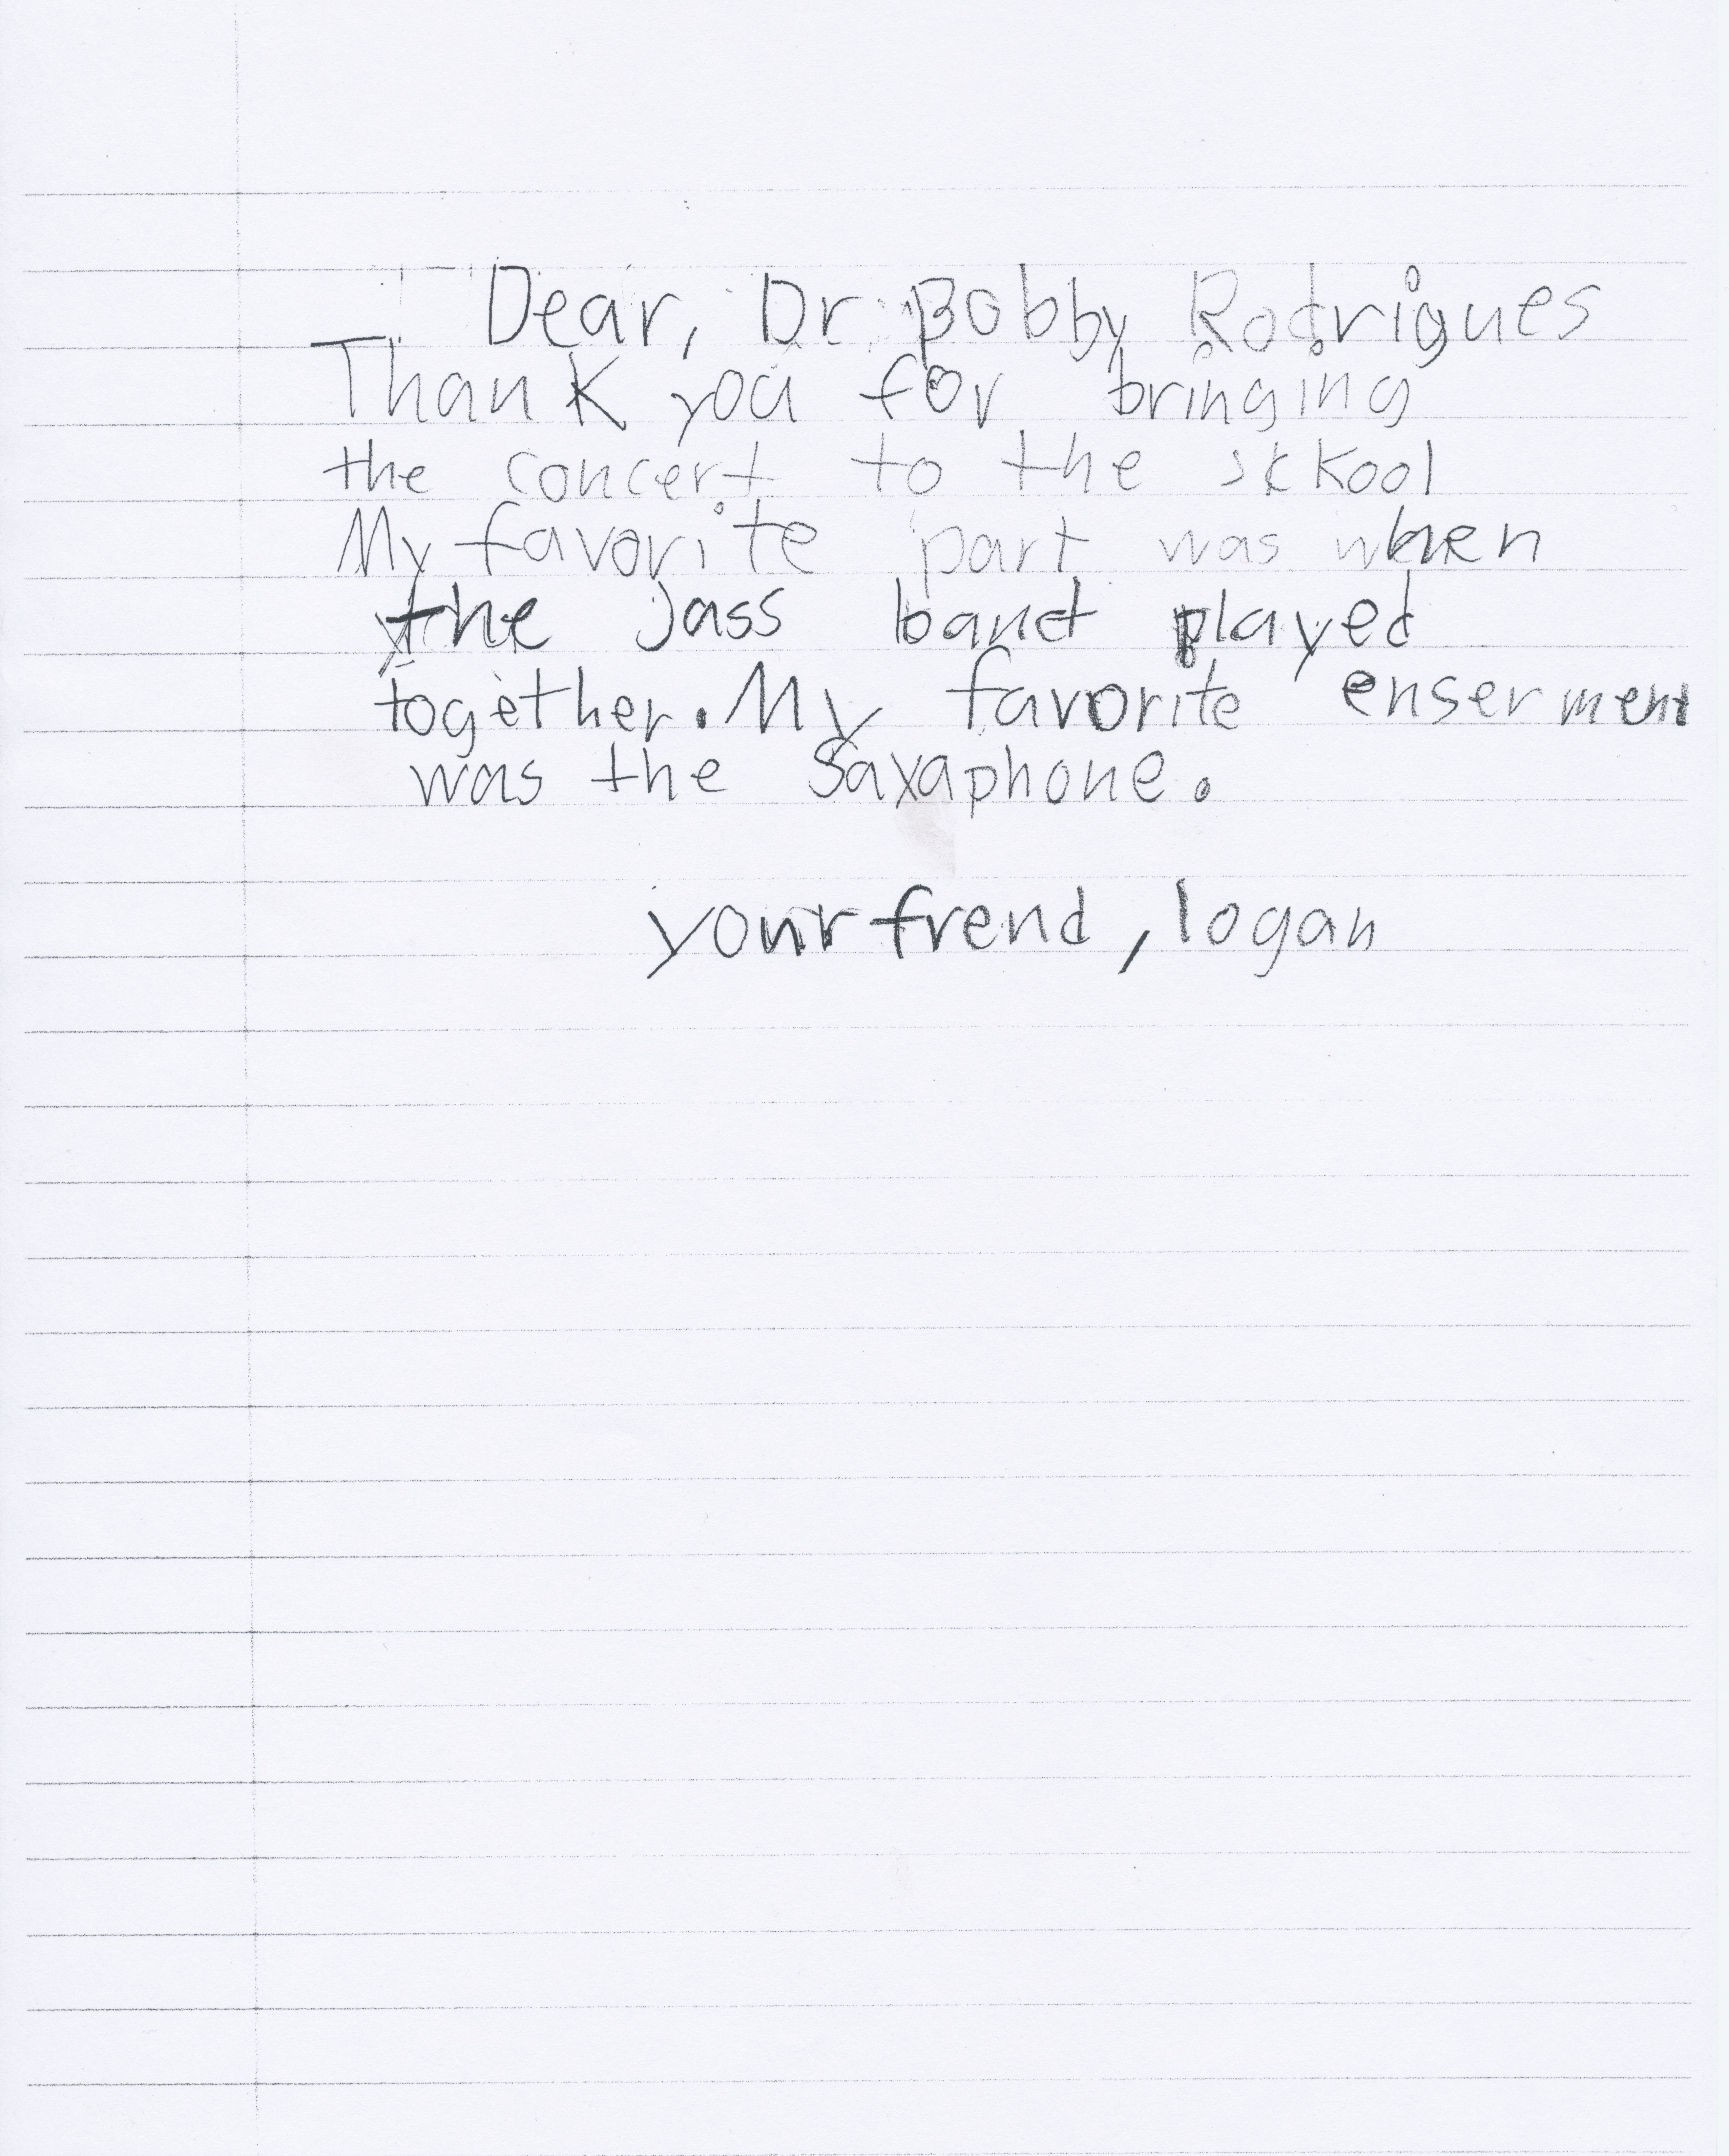 Dear, Dr. Bobby Rodrigues
Thank you for bringing
the concert to the skool
My favorite part was when
the Jass band played
together. My favorite enserment
was the Saxaphone.
your frend, logan